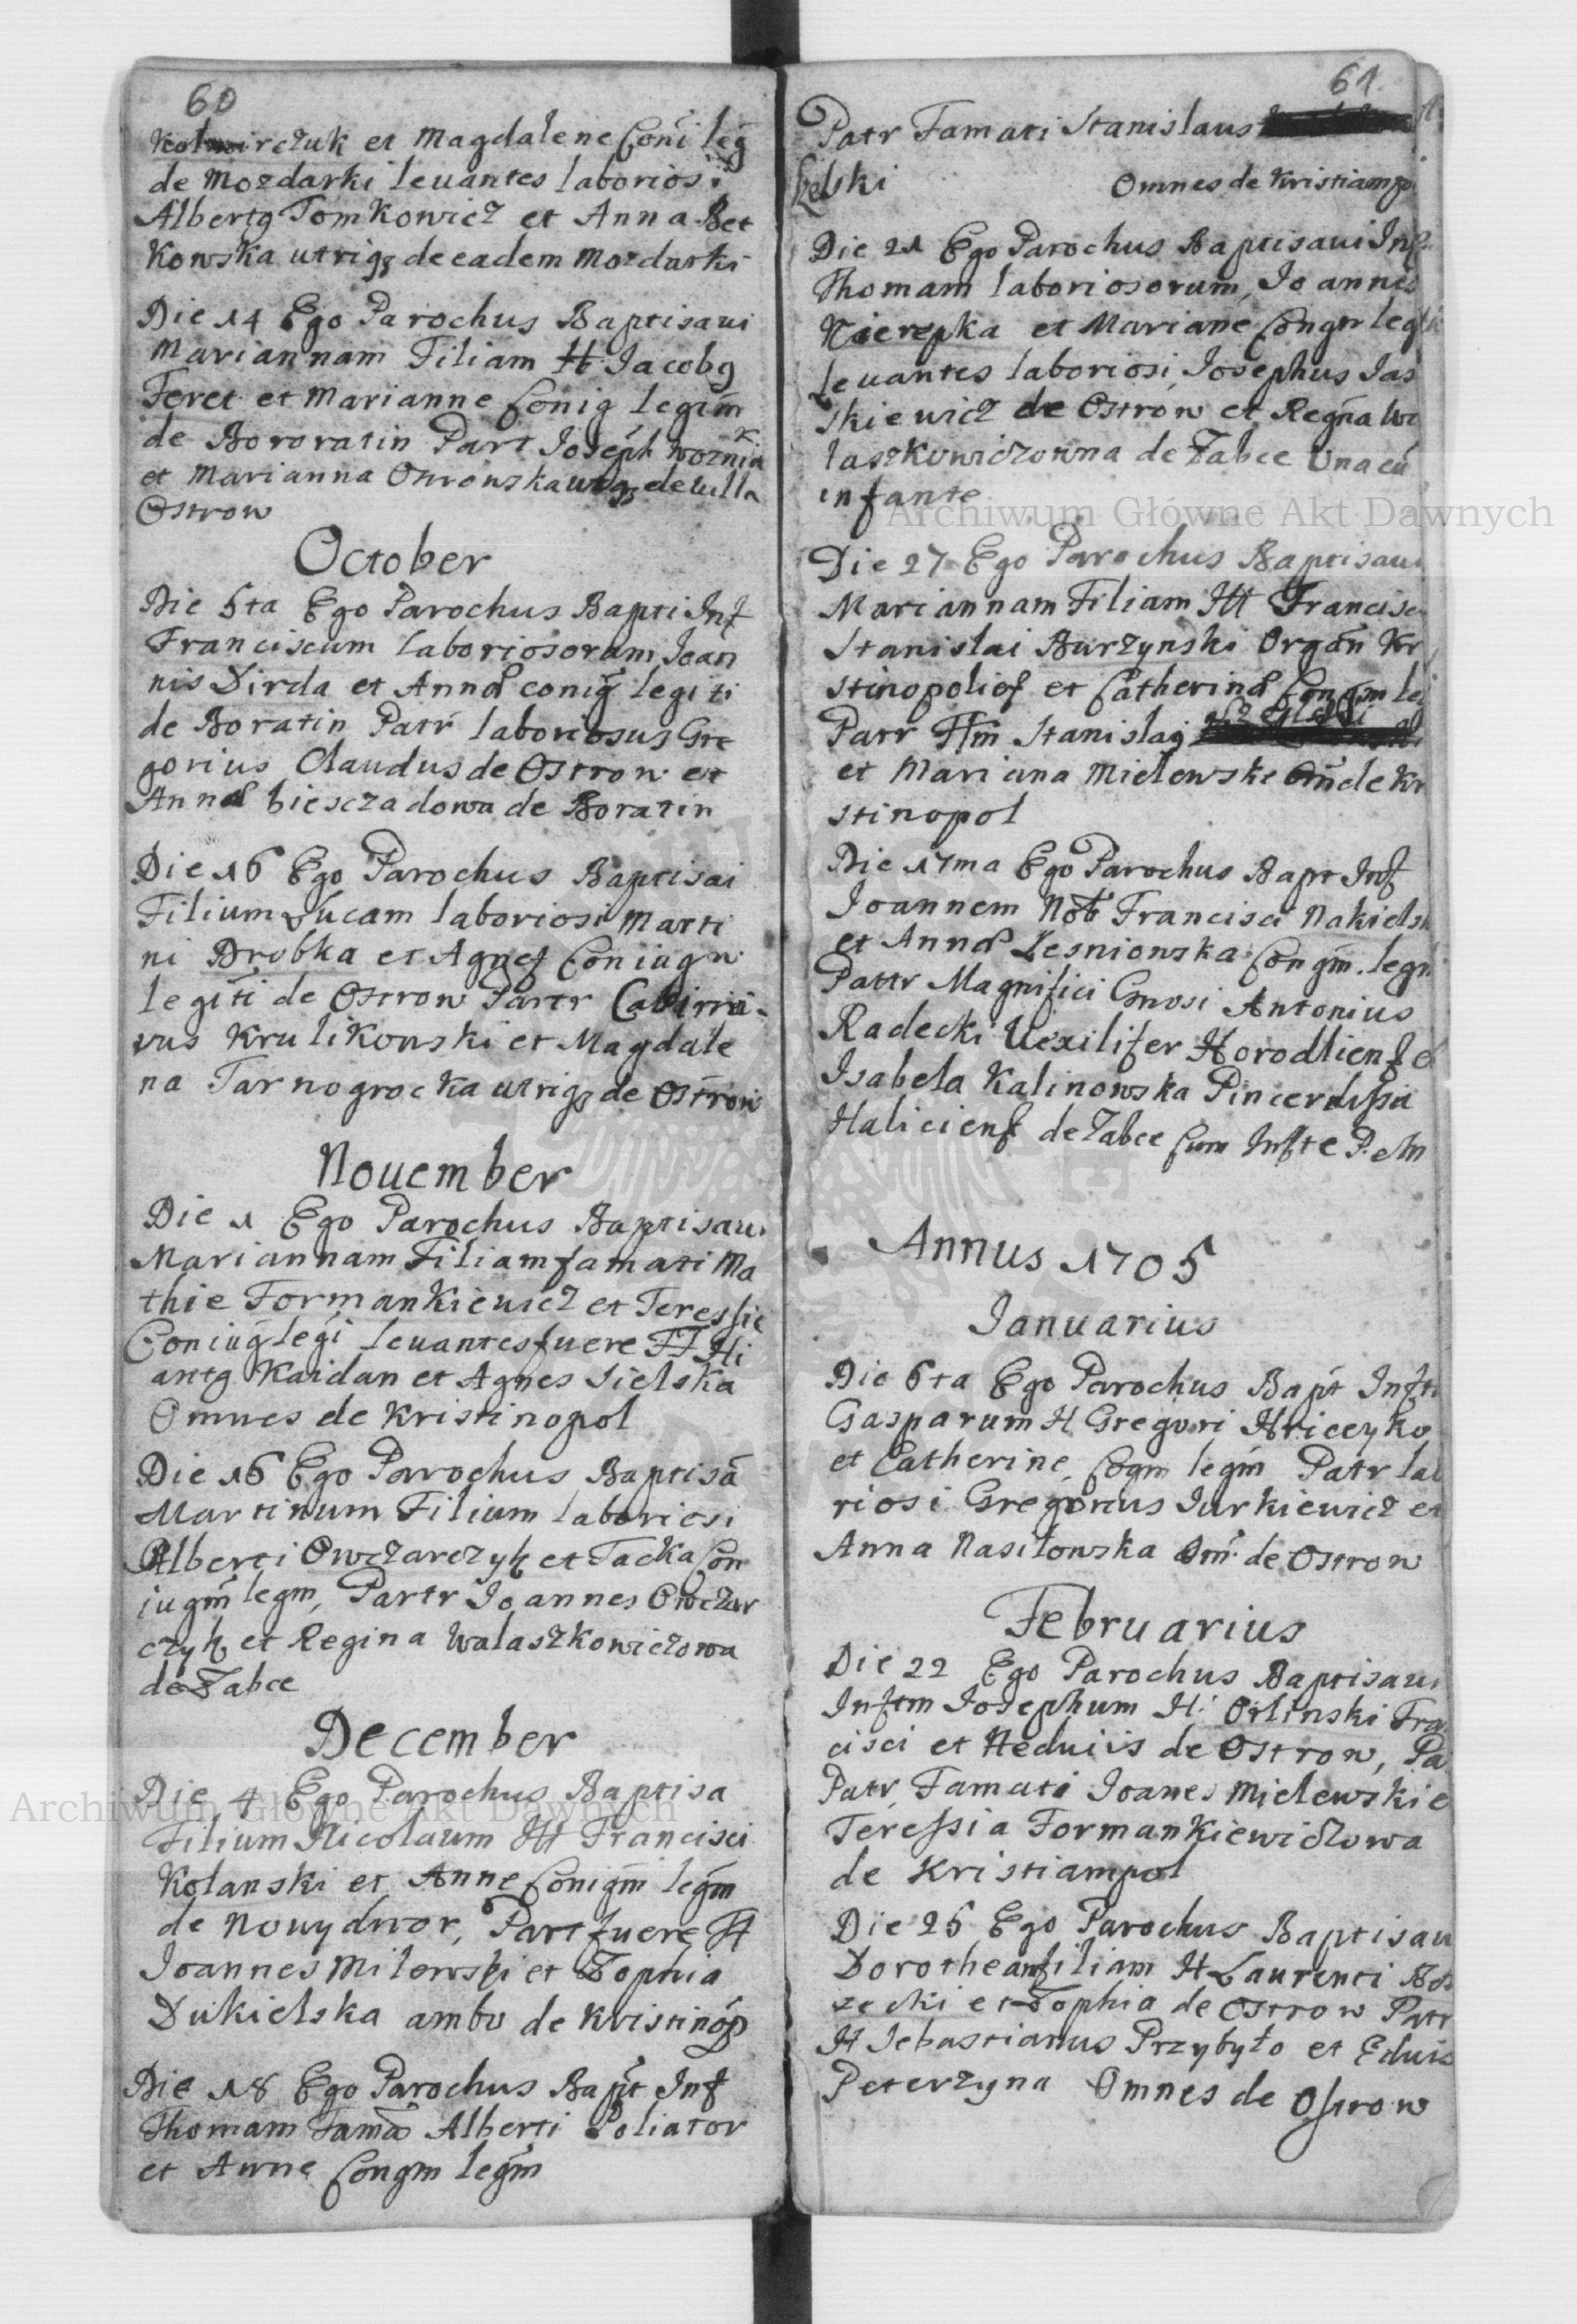 60
rczuk et Magdalene Coni leg
de Mozdarki leuantes laboriosi
Albertg Tomkowicz et Anna Bet
kowska utrigz de eadem Mozdarki
Die 14 Ego Parochus Baptisaui
Mariannam Filiam H Jacobg
Feret et Marianne Conig legim
de Bororatin Patr Joseph Woznia
k
et Marianna Ostrowska utrgz de uilla
Ostrow
October
Die 5ta Ego Parochus Bapti Inf
Franciscum laboriosorum Joan
nis Dirda et Anna conig legiti
de Boratin Patr laboriosus Gre
gorius Claudus de Ostrow et
Anna biesczadowa de Boratin
Die 16 Ego Parochus Baptisai
Filium Lucam laboriosi Marti
ni Drobka et Agnes Coniugw
legiti de Ostrow Partr
Krulikowski et Magdale
na Tarnogrocka utrigz de Ostrow
Nouember
Die 1 Ego Parochus Baptisaui
Mariannam Filiam famati Ma
thie Formankiewicz et Teressie
Coniug legi leuantes fuere FF Hi
antg Kaidan et Agnes Sielska
Omnes de Kristinopol
Die 16 Ego Parochus Baptisa
Martinum Filium laboriosi
Alberti Owczarczyk et Tacka Con
iugm legm, Partr Joannes Owczar
czyk et Regina Walaszkowiczowa
de Zabce
December
Die 4 Ego Parochus Baptisa
Filium Nicolaum H Francisci
Kolanski et Anne Conigm legm
de Nouydwor, Part fuere H
Joannes Milewski et Zophia
Dukielska ambo de Kristinop
Die 18 Ego Parochus Bapt Inf
Thomam Fama Alberti Poliator
et Anne Congm legm
61.
Patr Famati Stanislaus
Omnes de Kristiamp
Die 21 Ego Parochus Baptisaui Inf
Thomam laboriosorum, Joannes
Nierepka et Mariane Congw leg
leuantes laboriosi Josephus Jas
skiewicz de Ostrow et Regina Wa
laszkowiczowna de Zabce Una cu
infante
Die 27 Ego Parochus Baptisaui
Mariannam Filiam H Francisc
Stanislai Burzynski Organ Kr
stinopolies et Catherina Congm le
Patr Fm Stanislag
et Mariana Mielewske Om de Kr
stinopol
Die 17ma Ego Parochus Bapt Inf
Joannem Nob Francisci Nakiels
et Anna Lesniowska Congm. legi
Pattr Magnifici Gnosi Antonius
Radecki Uexilifer Horodliense
Isabela Kalinowska Pincerdissa
Haliciens de Zabce Cum Infte
Annus 1705
Ianuarius
Die 6ta Ego Parochus Bapt Inft
Gasparum H Gregori Hriceyko
et Catherine Cogm legm Patr lab
riosi Gregorius Jurkiewicz et
Anna Nasilowska Om de Ostrow
Februarius
Die 22 Ego Parochus Baptisaui
Inftm Josephum H. Orlinski Fra
cisci et Heduiis de Ostrow, Pa
Patr Famati Joanes Mielewski e
Teressia Formankiewiczowa
de Kristiampol
Die 25 Ego Parochus Baptisau
Dorotheam filiam H Laurenti Bo
zecki et Zophia de Ostrow Patr
H Sebastianus Przybyło et Eduis
Peterzyna Omnes de Ostrow
Archiwum Główne Akt Dawnych
Archiwum Główne Akt Dawnych